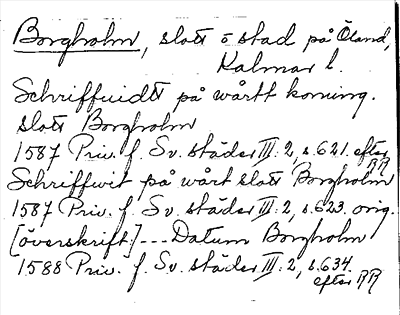 Borgholm, slott o stad på Öland,
Kalmar l.
Schriffuidtt på wårtt koning.
slott Borgholm
1587 Priv. f. Sv. städer III: 2, s. 621. efter RR
Schriffwit på wårt slott Borgholm
1587 Priv. f. Sv. städer III: 2, s. 623. orig.
[överskrift:] --- Datum Borgholm
1588 Priv. f. Sv. städer III: 2, s. 634.
efter RR